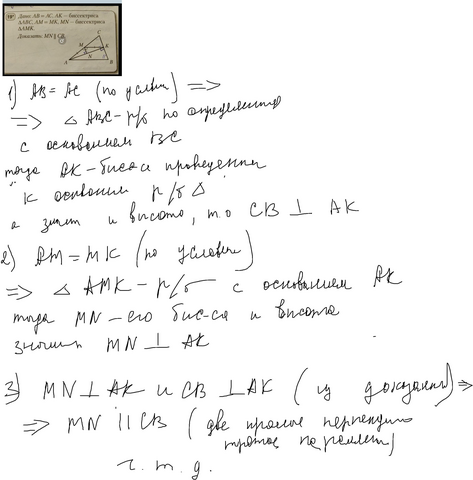 Дано: AB = AC, AK – биссектриса
△ABC, AM = MK, MN – биссектриса
△AMK.
Доказать: MN ∥ CB.
C
M
K
N
A
B
1) AB = AC (по услови) =>
=> △ ABC – р/б по определению
с основанием BC
тогда AK – бис-са проведенная
к основанию р/б △
а значит и высота, т.о CB ⊥ AK
2) AM = MK (по условию)
=> △ AMK – р/б с основанием AK
тогда MN – его бис-са и высота
значит MN ⊥ AK
3) MN ⊥ AK и CB ⊥ AK (из доказанн) =>
=> MN || CB (две прямые перпенд
третьей параллел)
ч.т.д.